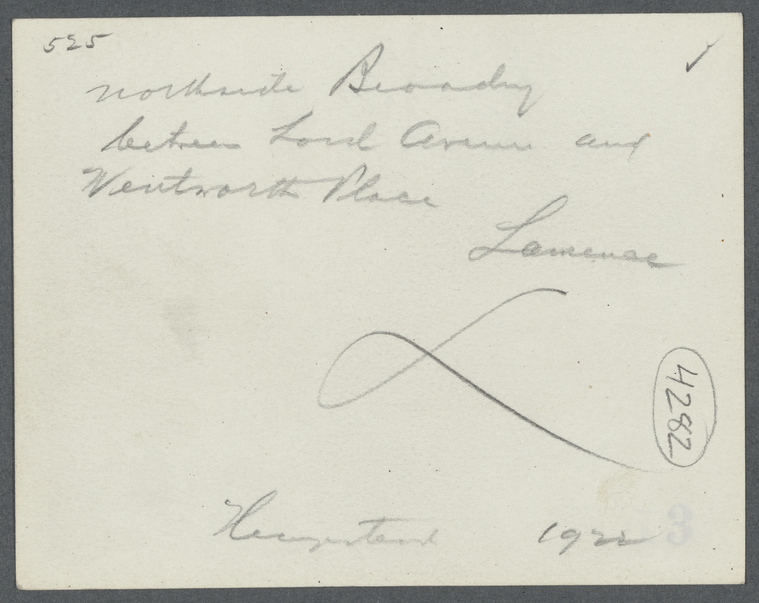 525
northside Broadway
between Lord Avenue and
Wentworth Place
Lawrence
4282
Hempstead 1922